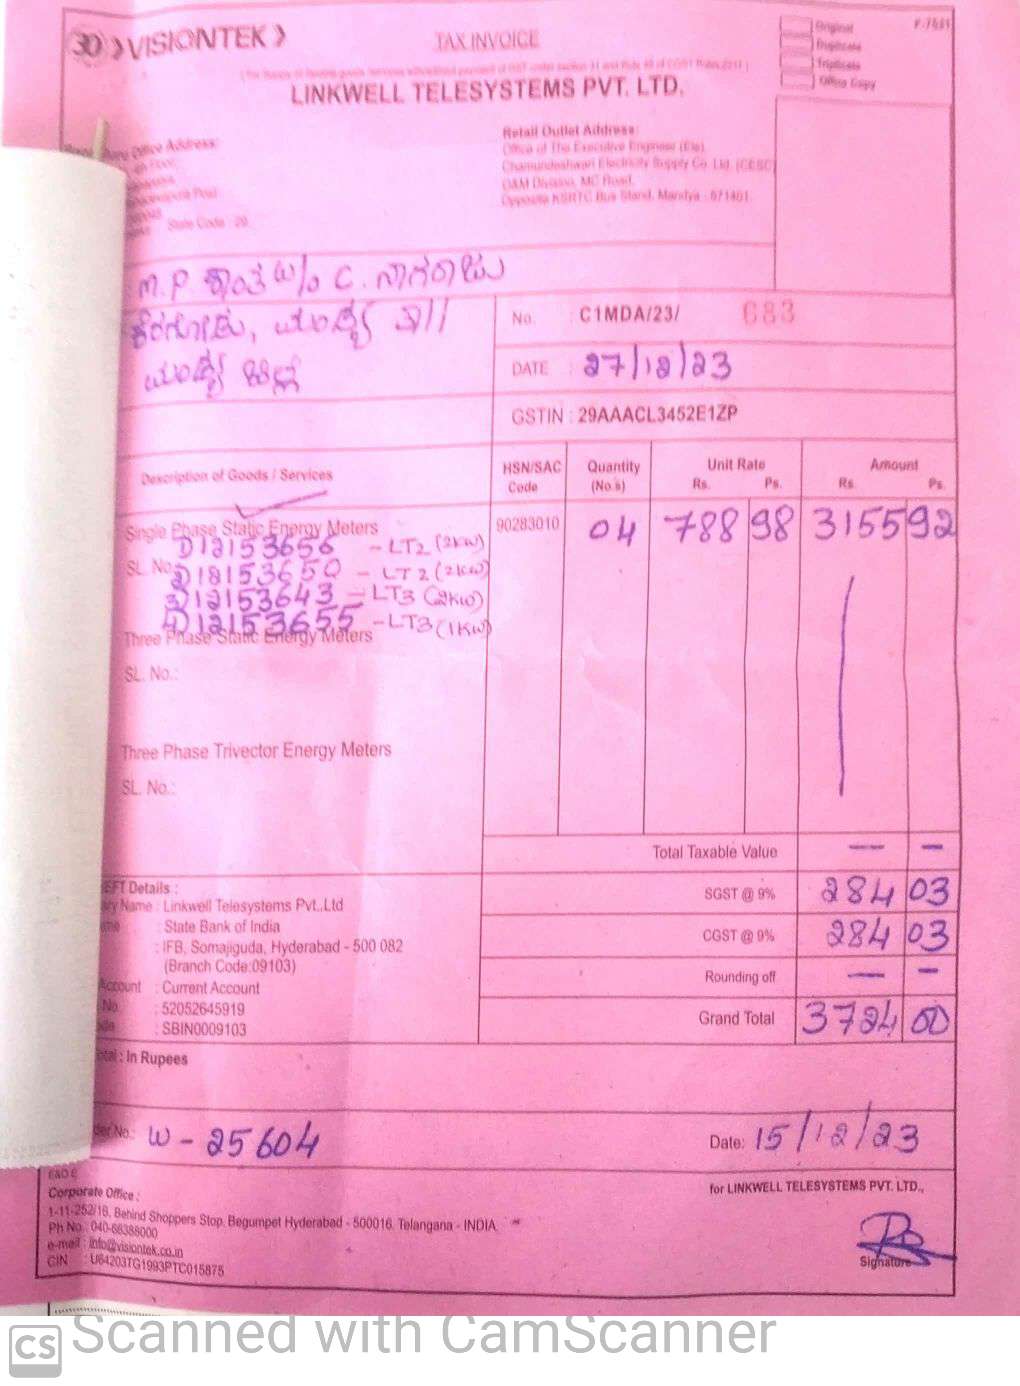 30 VISIONTEK
TAX INVOICE
Original
Duplicate
Triplicate
Office Copy
F-7531
LINKWELL TELESYSTEMS PVT. LTD.
Office Address:
State Code : 29
Retail Outlet Address
Office of The Executive Engineer (Ele)
Chamundeshwari Electricity Supply Co. Ltd. (CESC)
O&M Division, MC Road,
Opposite KSRTC Bus Stand, Mandya - 571401.
M.P ಶಾಂತ w/o C. ನಾಗರಾಜು
ಮಂಡ್ಯ ತಾ//
ಮಂಡ್ಯ ಜಿಲ್ಲೆ
No. : C1MDA/23/ 683
DATE : 27/12/23
GSTIN : 29AAACL3452E1ZP
Description of Goods / Services
HSN/SAC Code
Quantity (No.s)
Unit Rate Rs. Ps.
Amount Rs. Ps.
Single Phase Static Energy Meters 90283010 04 788 98 3155 92
1) 12153656 - LT2 (2KW)
SL. No. 2) 12153650 - LT2 (2KW)
3) 12153643 - LT3 (2KW)
4) 12153655 - LT3 (1KW)
Three Phase Static Energy Meters
SL. No.:
Three Phase Trivector Energy Meters
SL. No.:
Total Taxable Value — —
SGST @ 9% 284 03
CGST @ 9% 284 03
Rounding off — —
Grand Total 3724 00
EFT Details :
Name : Linkwell Telesystems Pvt.,Ltd
: State Bank of India
: IFB, Somajiguda, Hyderabad - 500 082
(Branch Code:09103)
Account : Current Account
No : 52052645919
: SBIN0009103
: In Rupees
No.: W - 25604
Date: 15/12/23
E&O.E
Corporate Office :
1-11-252/16, Behind Shoppers Stop, Begumpet Hyderabad - 500016, Telangana - INDIA
Ph No : 040-66388000
e-mail : info@visiontek.co.in
CIN : U64203TG1993PTC015875
for LINKWELL TELESYSTEMS PVT. LTD.,
Signature
CS Scanned with CamScanner